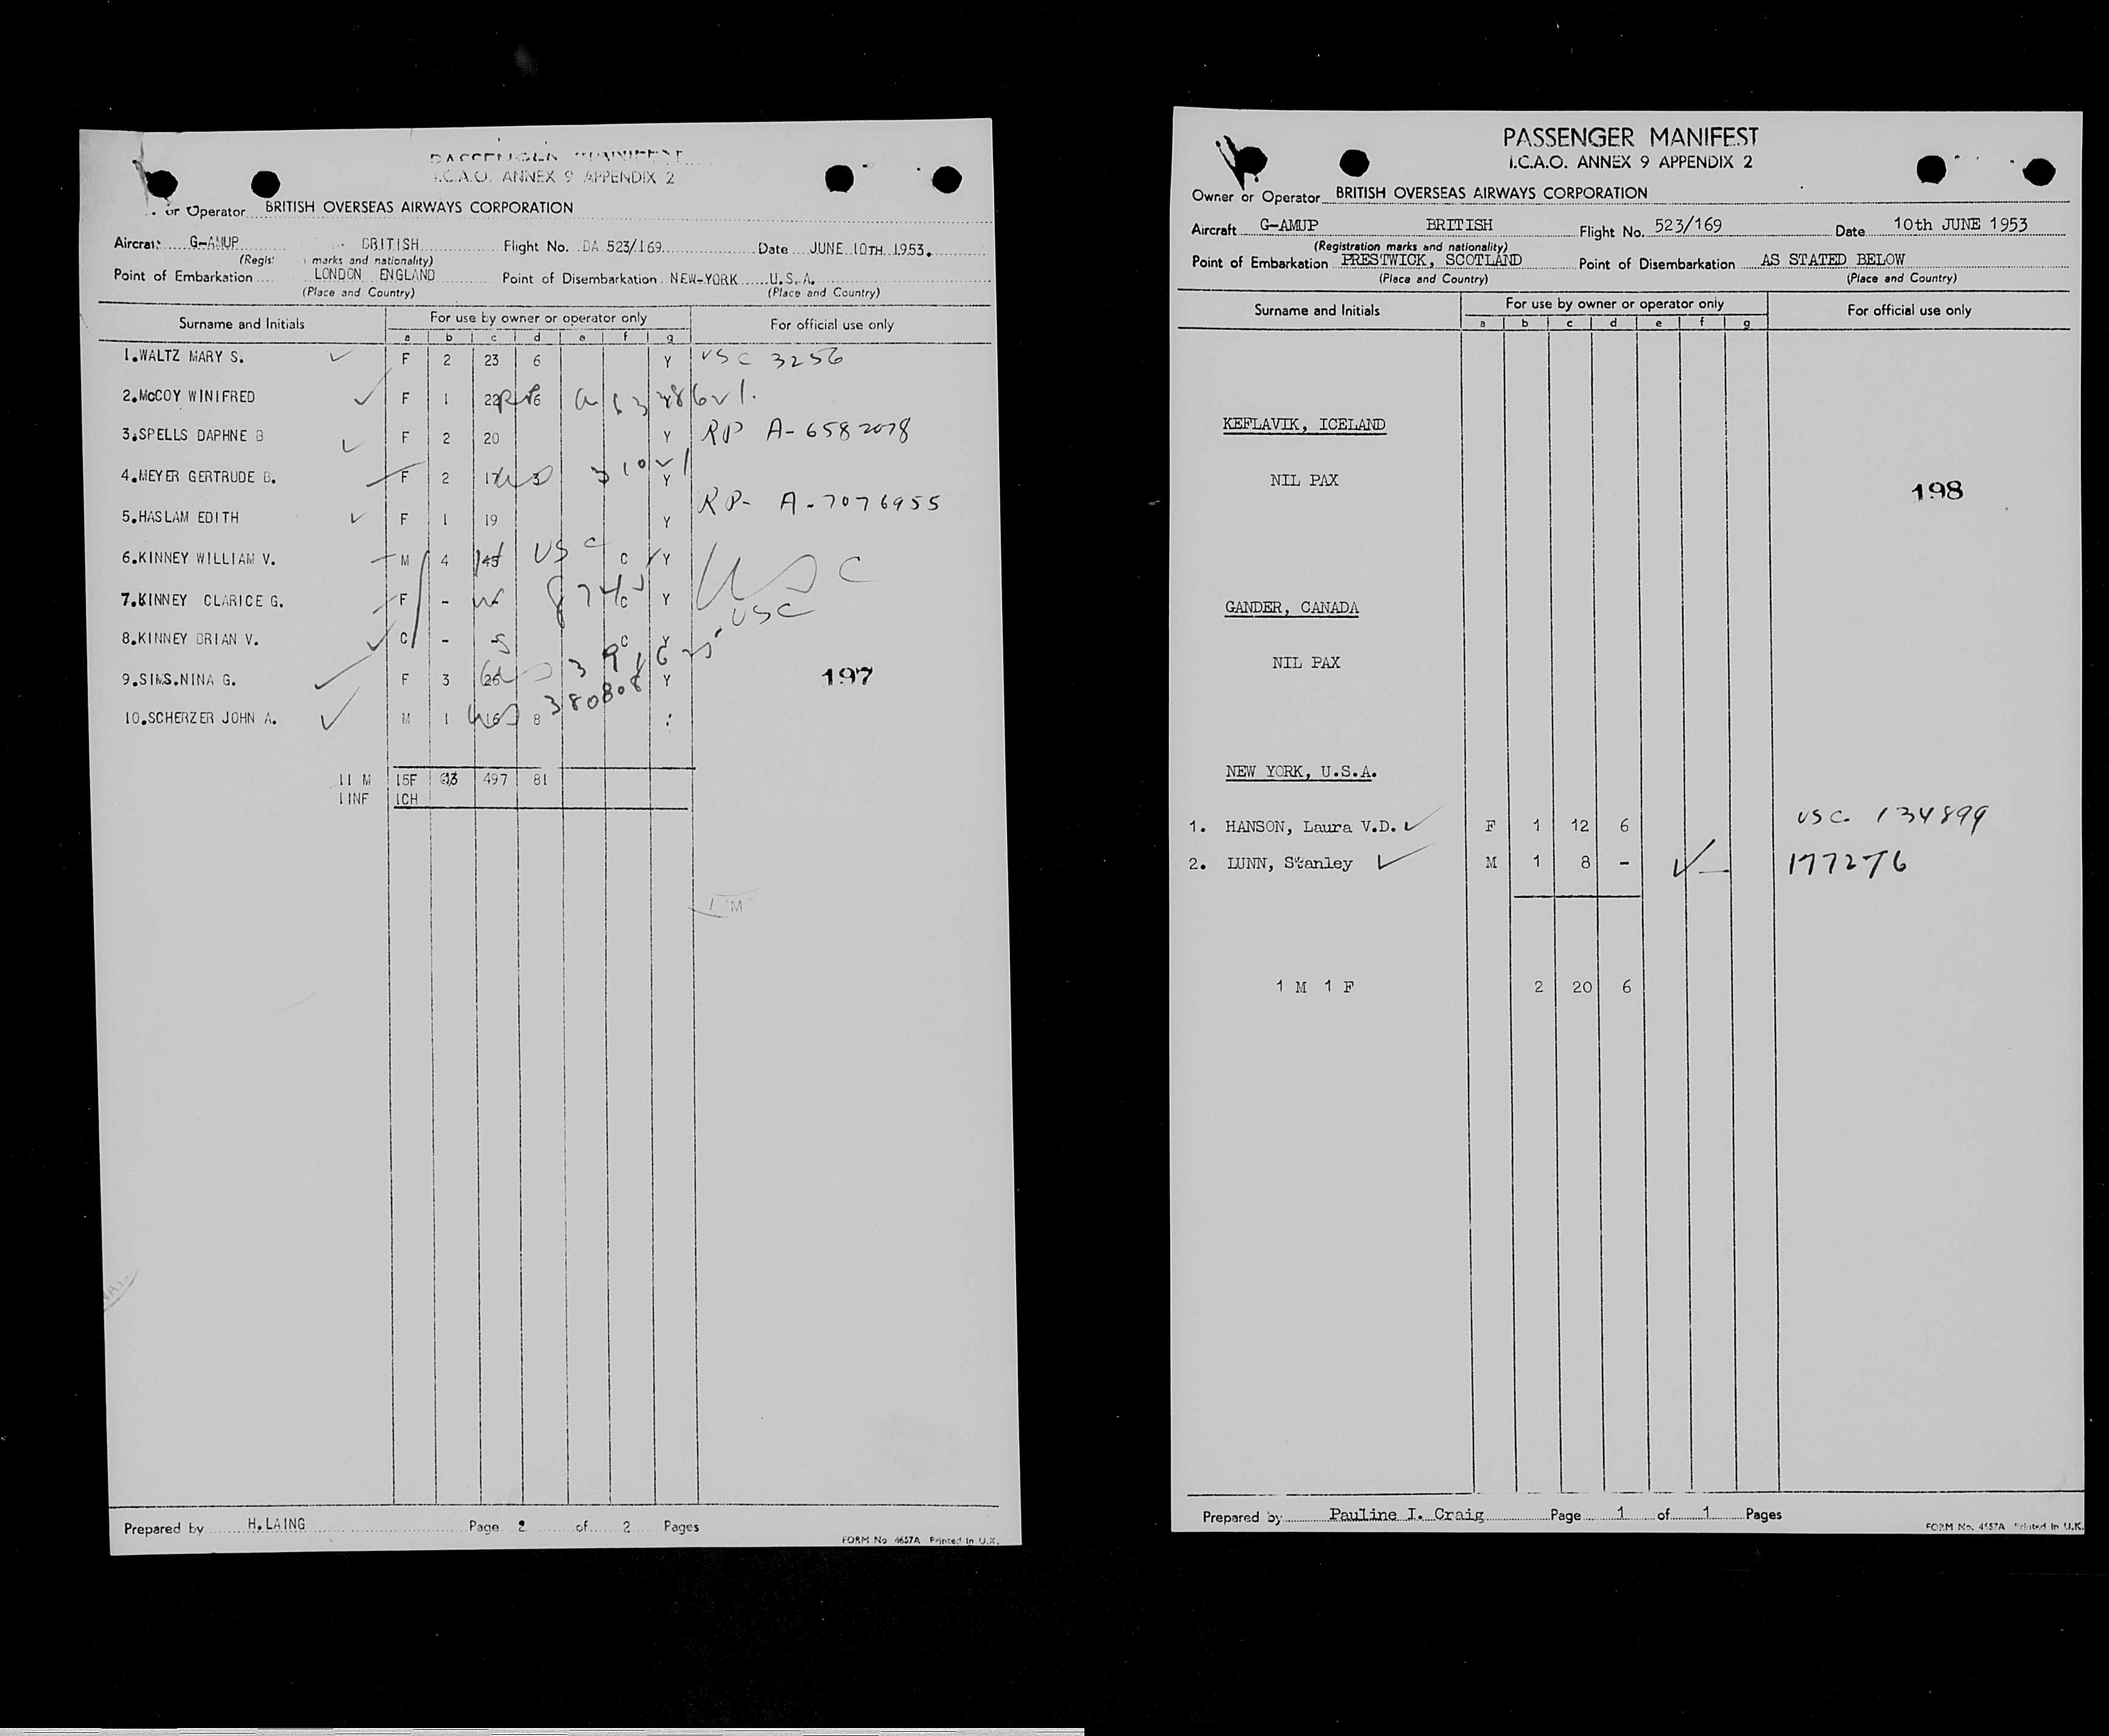 PASSENGER MANIFEST
I.C.A.O. ANNEX 9 APPENDIX 2
or Operator BRITISH OVERSEAS AIRWAYS CORPORATION
Aircraf G-AMUP BRITISH Flight No. BA 523/169 Date JUNE 10TH 1953.
(Regis marks and nationality)
Point of Embarkation LONDON ENGLAND Point of Disembarkation NEW-YORK U.S.A.
(Place and Country) (Place and Country)
Surname and Initials For use by owner or operator only For official use only
a b c d e f g
1.WALTZ MARY S. F 2 23 6 Y USC 3256
2.McCOY WINIFRED F 1 22 6
3.SPELLS DAPHNE B F 2 20 Y RP A-6582078
4.MEYER GERTRUDE B. F 2 17 3 Y
RP- A-7076955
5.HASLAM EDITH F 1 19 Y
6.KINNEY WILLIAM V. M 4 45 USC C Y USC
7.KINNEY CLARICE G. F - - C Y USC
8.KINNEY BRIAN V. C - - C Y
9.SIMS.NINA G. F 3 26 Y 197
10.SCHERZER JOHN A. M 1 16 8 380808
11 M 15F 497 81
1 INF 1CH
Prepared by H.LAING Page 2 of 2 Pages
FORM No 4657A Printed in U.K.
PASSENGER MANIFEST
I.C.A.O. ANNEX 9 APPENDIX 2
Owner or Operator BRITISH OVERSEAS AIRWAYS CORPORATION
Aircraft G-AMUP BRITISH Flight No. 523/169 Date 10th JUNE 1953
(Registration marks and nationality)
Point of Embarkation PRESTWICK, SCOTLAND Point of Disembarkation AS STATED BELOW
(Place and Country) (Place and Country)
Surname and Initials For use by owner or operator only For official use only
a b c d e f g
KEFLAVIK, ICELAND
NIL PAX 198
GANDER, CANADA
NIL PAX
NEW YORK, U.S.A.
1. HANSON, Laura V.D. F 1 12 6 USC. 134899
2. LUNN, Stanley M 1 8 - 177276
1 M 1 F 2 20 6
Prepared by Pauline I. Craig Page 1 of 1 Pages
FORM No. 4657A Printed in U.K.